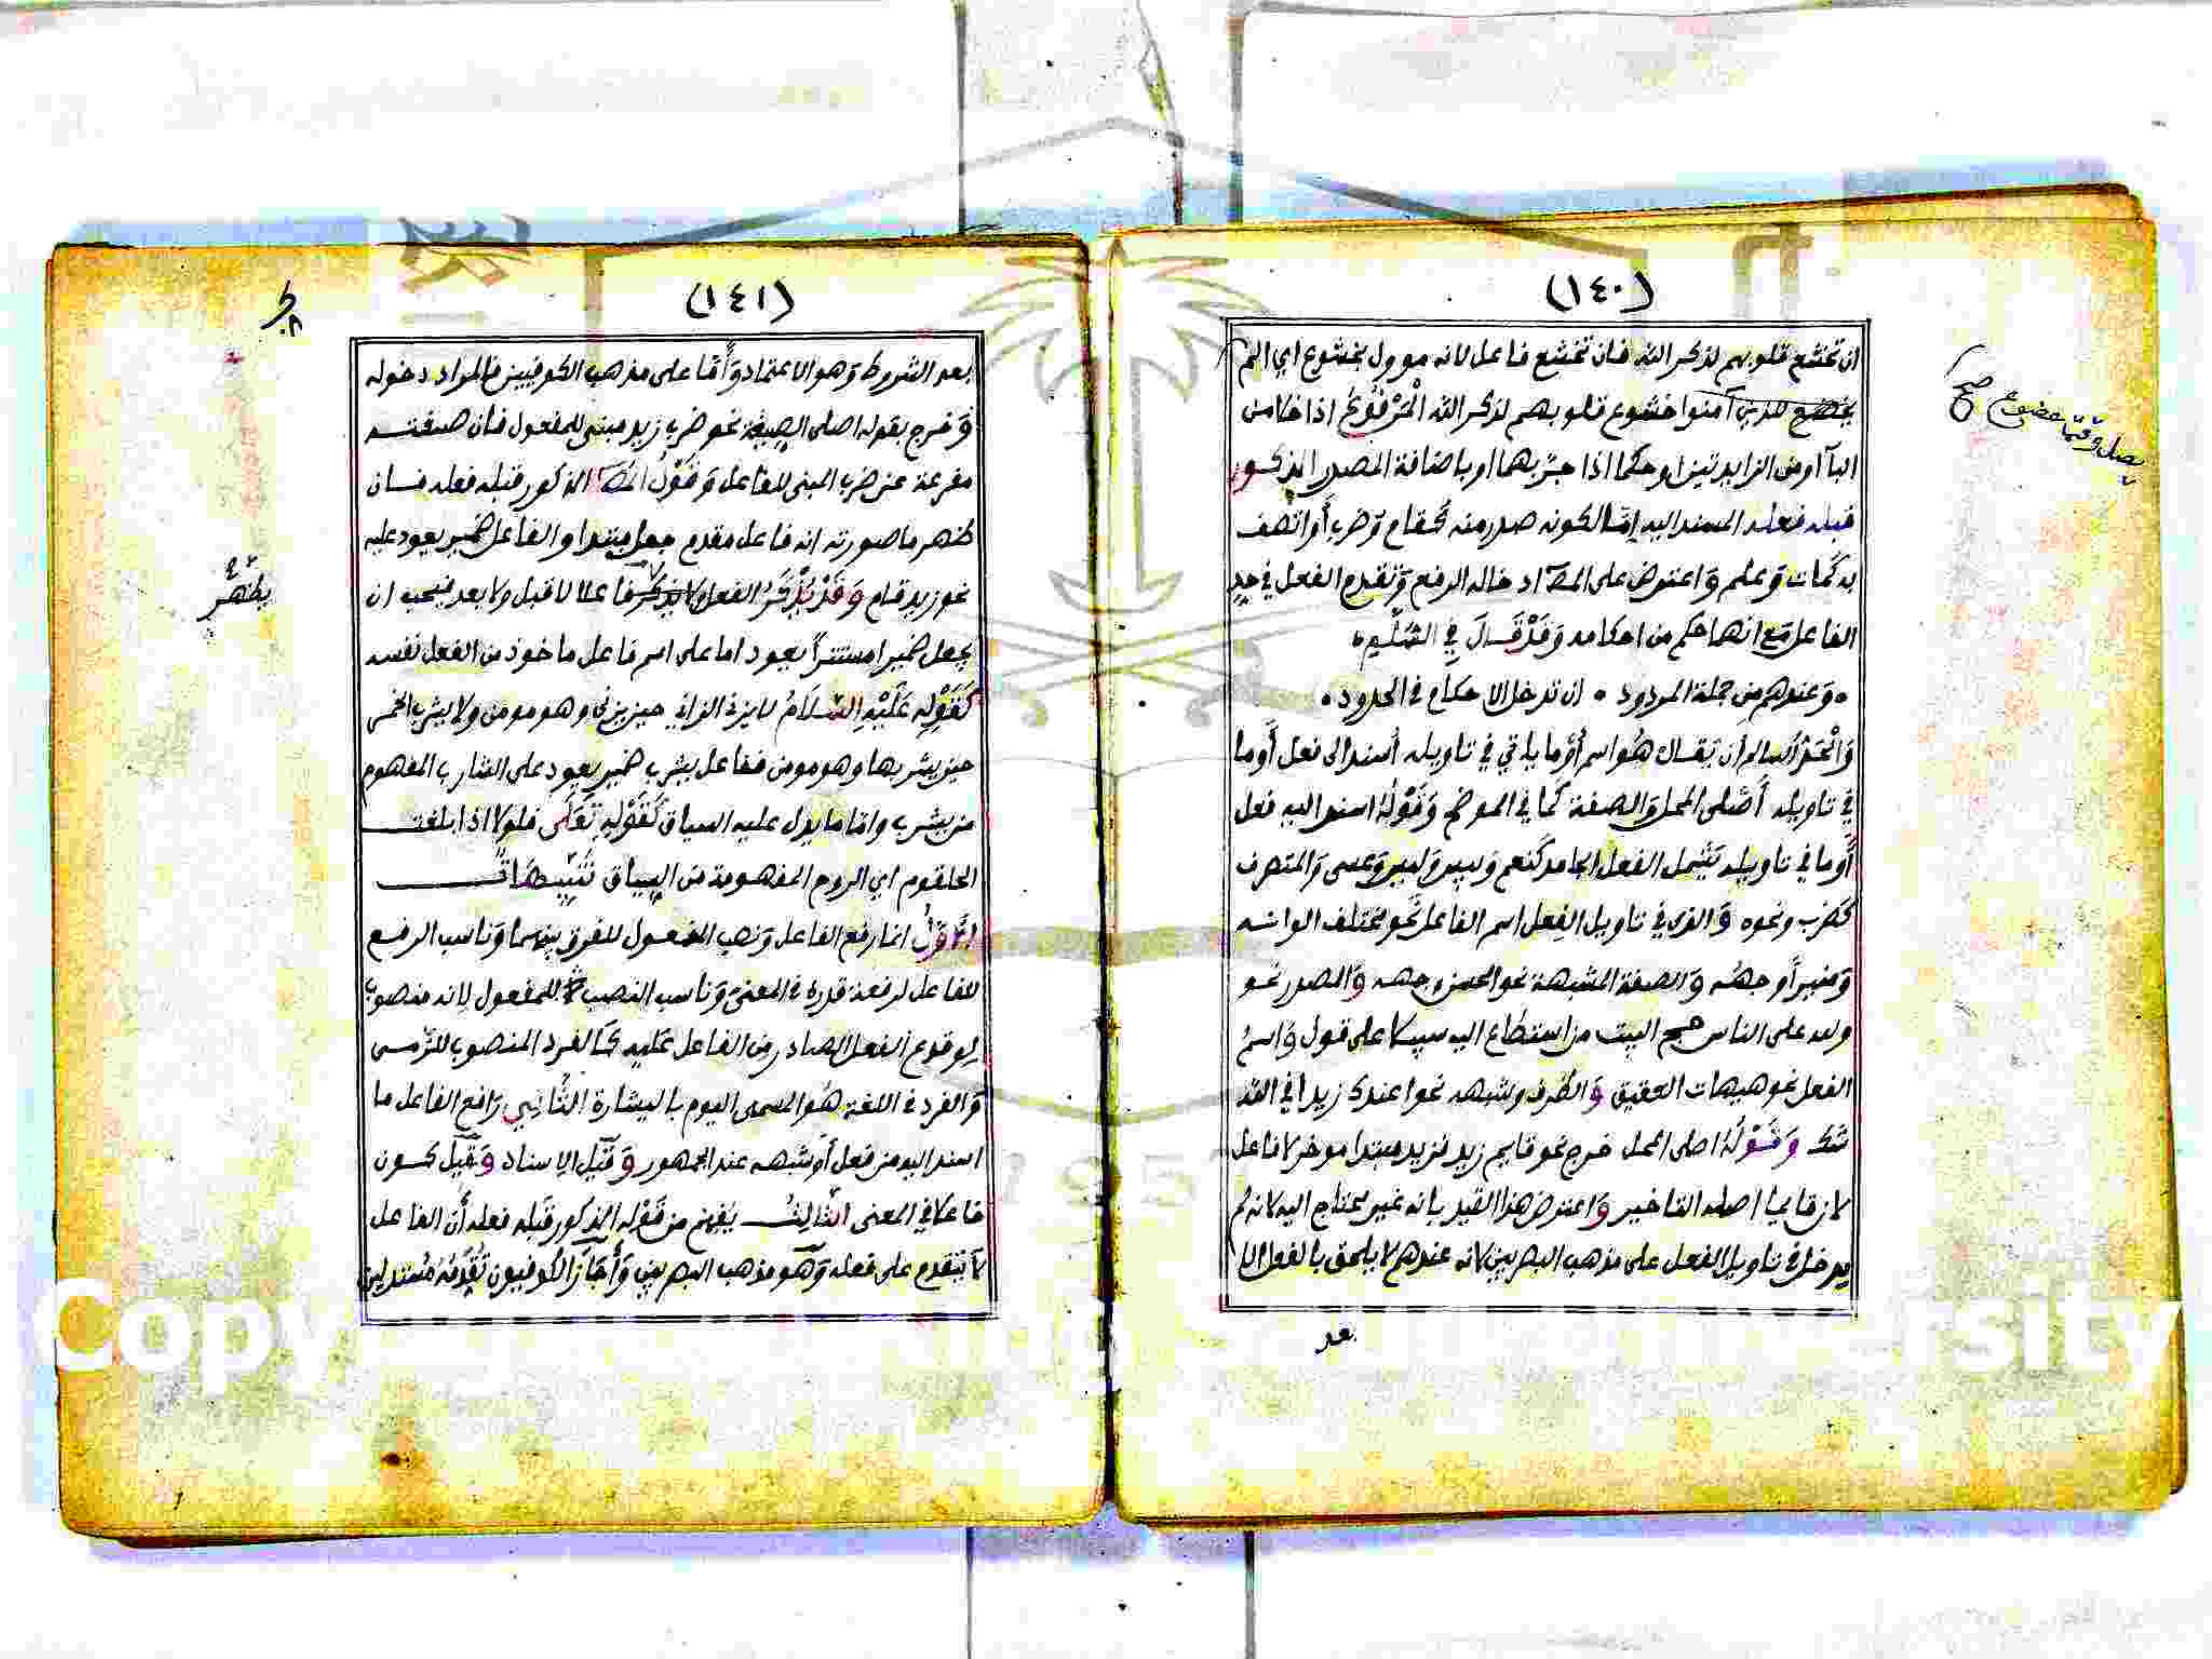 (١٤٠)
ان تخشع قلوبهم لذكر الله فان تخشع فاعل لانه موول بخشوع اي الم
يخضع للذين آمنوا خشوع قلوبهم لذكر الله الْمَرْفُوعُ اذا خلا من
البآ او من الزايدتين او حكما اذا جر بهما او باضافة المصدر المذكور
قبله فعله المسند اليه إمّا لكونه صدر منه كقام وَضرب أَو اتصف
به كَمات وَعلم وَاعترض على المصَ ادخاله الرفع وَتقدم الفعل في حد
الفاعل مَع انهما حكم من احكامه وَقَدْ قَالَ في السّلّم ه
ه وَعندهم من جملة المردود ه ان تدخل الاحكام في الحدود ه
وَالْحَدُّ السالم أن يقال هُو اسم أوْ ما في تاويله أسند الى فعل أَو ما
في تاويله أَصْلي المحل وَالصيغة كما في الموضح وَقَوْلُهُ اسند اليه فعل
أَو ما في تاويله يَشمل الفعل الجامد كَنعم وَبيس وَليس وَعسى وَالمتصرف
كضرب ونحوه وَالذي في تاويل الفِعل اسم الفاعل نَحو مختلف الوانه
وَمنير أَوجهُه وَالصفة المشبهة نحو الحسن وجهه وَالمصدر نحو
ولله على الناس حج البيت من استطاع اليه سبيلا على قول وَاسمُ
الفعل نحو هيهات العقيق وَالظرف وشبهه نحو اعندك زيد افي الله
شك وَقَوْلُهُ اصلي المحل خرج نحو قايم زيد فزيد مبتدا موخر لا فاعل
لان قايما اصله التاخير وَاعترض هذا القيد بانه غير محتاج اليه لانه لم
يدخل في تاويل الفعل على مذهب البصريين لانه عندهم لا يلحق بالفعل الا
بعد
صح
(١٤١)
بعد الشروط وَهو الاعتماد وَأَمّا على مذهب الكوفيين فالمراد دخوله
وَخرج بقوله اصلي الصيغة نحو ضرب زيد مبني للمفعول فان صيغته
مفرعة عن ضرب المبني للفاعل وَقَوْلُ المصَ المذكور قبله فعله فان
ظهر ما صورته انه فاعل مقدم جعل مبتدا والفاعل ضمير يعود عليه
نحو زيد قام وَقَدْ يُذْكَرُ الفعل لا يذكر فاعلا لا قبل ولا بعد فيجب ان
يجعل ضميرا مستترا يعود اما على اسم فاعل ماخوذ من الفعل نفسه
كَقَوْلِهِ عَلَيْهِ السَّلَامُ لا يزني الزاني حين يزني وهو مومن ولا يشرب الخمر
حين يشربها وهو مومن ففاعل يشرب ضمير يعود على الشارب المفهوم
من يشرب واما ما يدل عليه السياق كَقَوْلِهِ تَعَالَى فلولا اذا بلغت
الحلقوم اي الروح المفهومة من السياق تَنْبِيهَاتٌ
الْأَوَّلُ انما رفع الفاعل وَنصب المفعول للفرق بينهما وَناسب الرفع
للفاعل لرفعة قدره في المعنى وَناسب النصب للمفعول لانه منصوب
لوقوع الفعل الصادر من الفاعل عَليه كَالفرد المنصوب للرّمي
وَالفرد في اللغة هُو المسمى اليوم بالبيشارة الثَّانِي رَافع الفاعل ما
اسند اليه من فعل أَو شبهه عند الجمهور وَقيل الاسناد وَقيل كون
فاعلا في المعنى الثَّالِثُ يُفهم من قَوْلِه المذكور قبله فعله أَن الفاعل
لا يتقدم على فعله وَهو مذهب البصريين وَأَجَازَ الكوفيون تَقَدُّمَهُ مُستدلين
يظهر